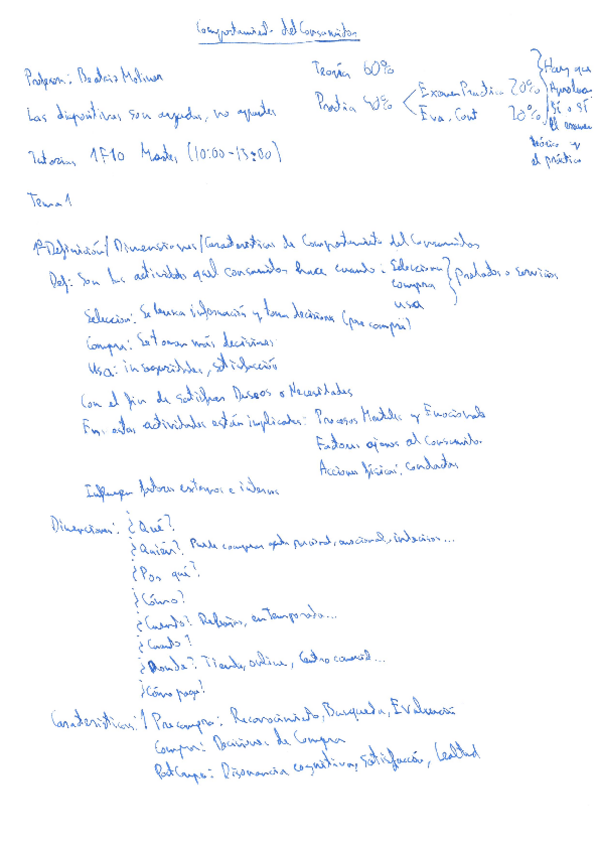 Comportamient. del Consumidor
Profesora: Beatriz Moliner
Teoría 60%
Practica 40% < Examen Practica 20%
Eva. Cont 20%
} Hay que
Aprobar
Sí o Sí
el examen
teórico y
el práctico
Las diapositivas son ayudas, no apuntes
Tutorías 1F10 Martes (10:00-13:00)
Tema 1
1º Definición/Dimensiones/Caracteristicas de Comportamiento del Consumidor
Def: Son las actividades q el consumidor hace cuando: Selecciona
compra
usa
} Productos o servicios
Selección: Se busca información y toma decisiones (pre compra)
Compra: Se toman más decisiones
Usa: inseguridades, satisfacción
Con el fin de satisfacer Deseos o Necesidades
En estas actividades están implicadas: Procesos Mentales y Emocionales
Factores ajenos al Consumidor
Acciones físicas, conductas
Influyen factores externos e internos
Dimensiones: ¿Qué?
¿Quién? Puede comprar personal, emocional, indeciso...
¿Por qué?
¿Cómo?
¿Cuándo? Rebajas, en Temporada...
¿Cuanto?
¿Donde? Tienda, online, Centro comercial...
¿Cómo paga?
Caracteristicas: 1 Precompra: Reconocimiento, Busqueda, Evaluación
Compra: Decisiones de Compra
PostCompra: Disonancia cognitiva, Satisfacción, Lealtad